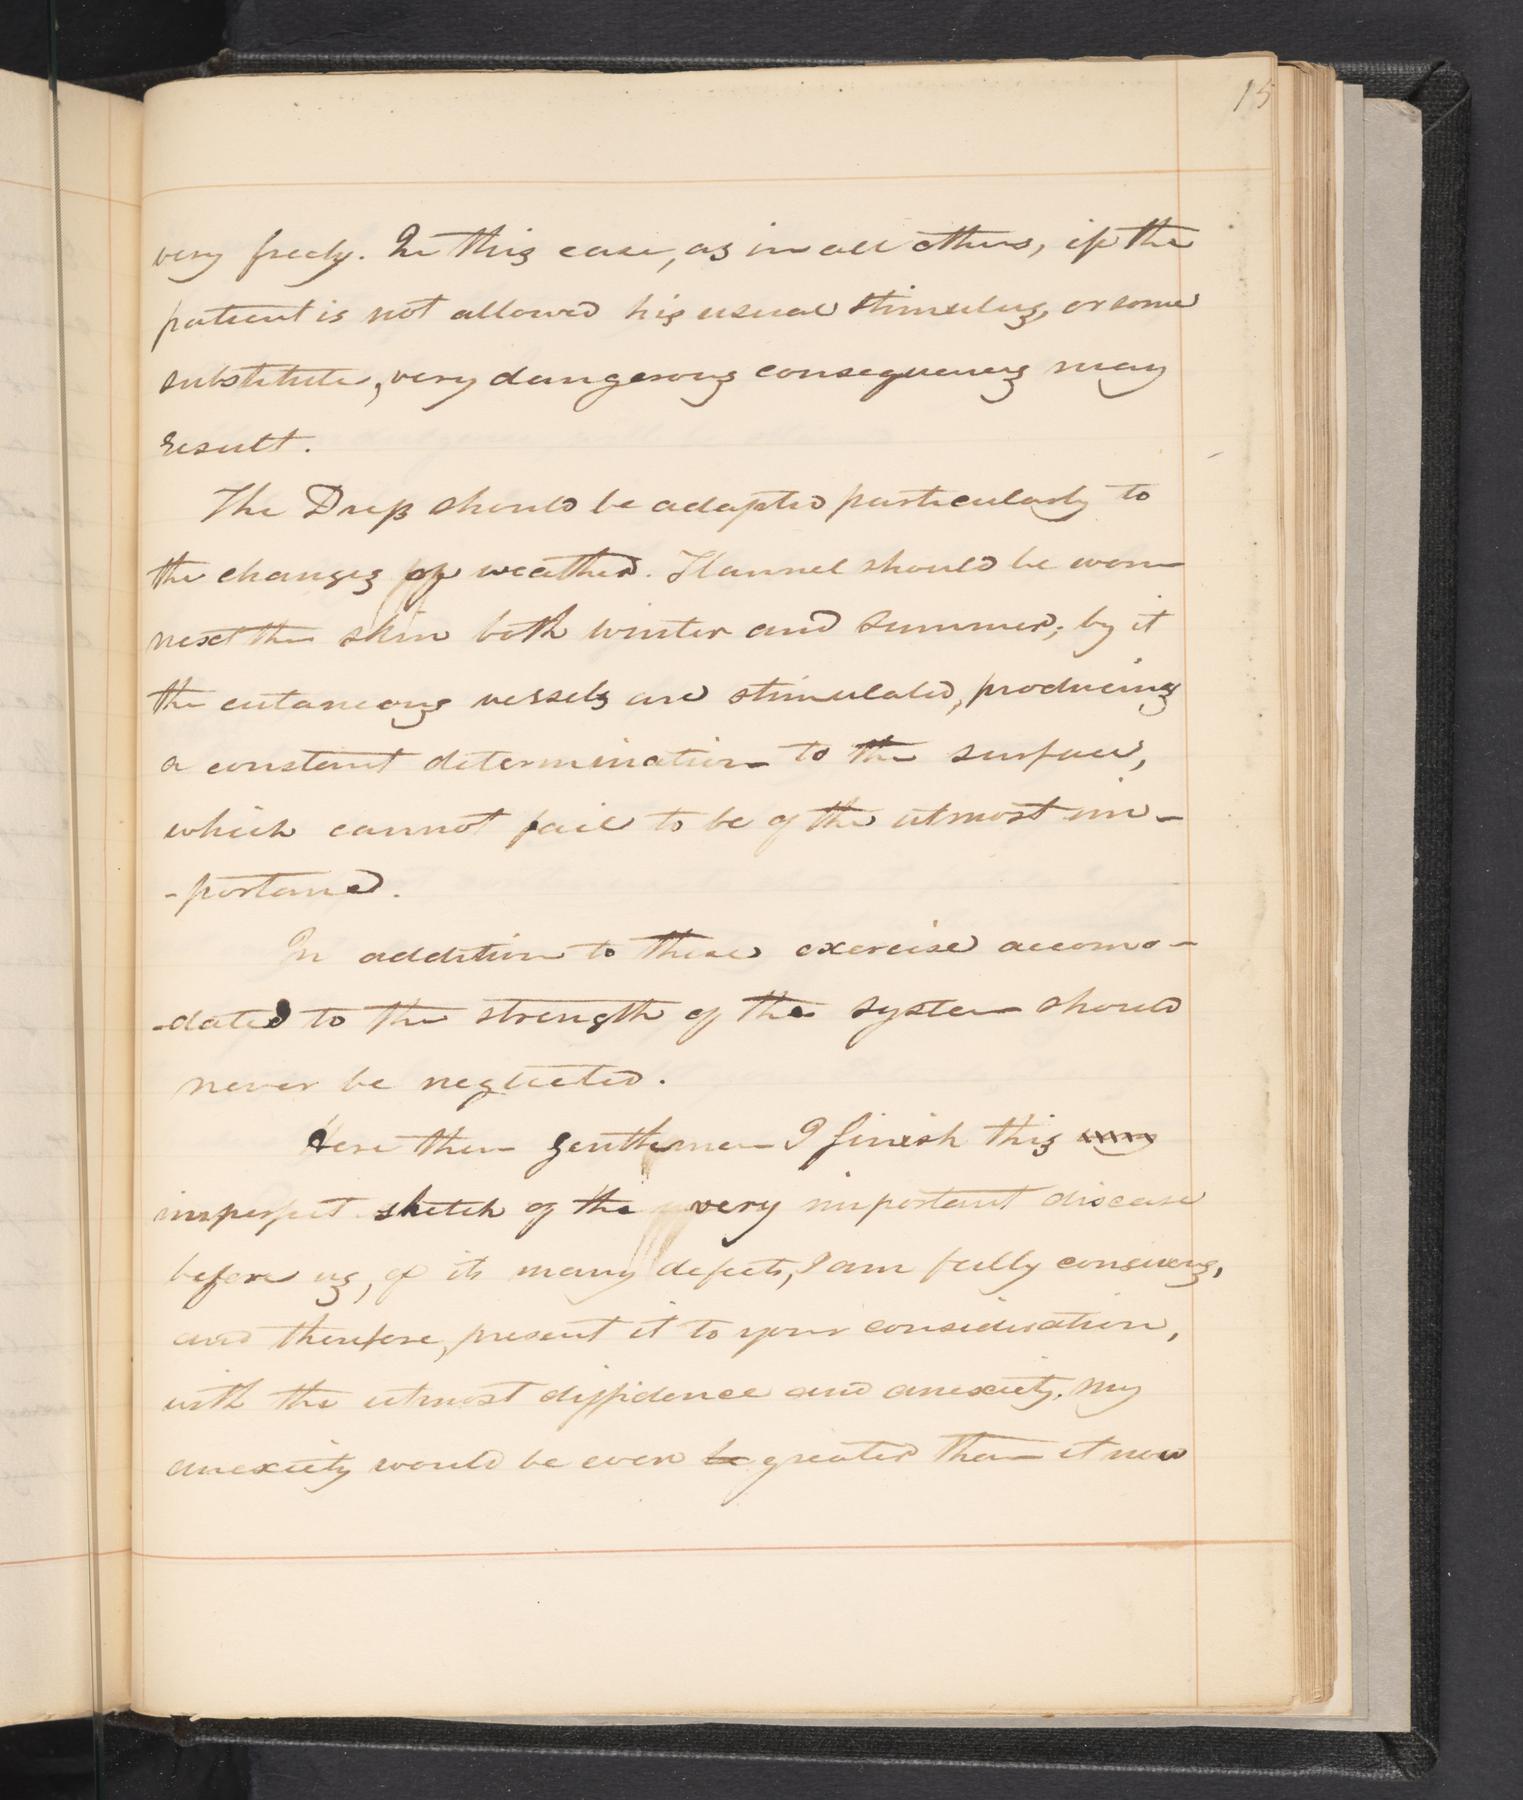 15
very freely. In this case, as in all others, if the
patient is not allowed his usual stimulus, or some
substitute, very dangerous consequences may
result.
The Dress should be adapted particularly to
the changes of weather. Flannel should be worn
next the skin both winter and summer; by it
the cutaneous vessels are stimulated, producing
a constant determination to the surface,
which cannot fail to be of the utmost im-
-portance.
In addition to these exercise accomo-
-dated to the strength of the system should
never be neglected.
Here then gentlemen I finish this very
imperfect sketch of the very important disease
before us, of its many defects, I am fully conscious,
and therefore, present it to your consideration,
with the utmost diffidence and anexiety. My
anexiety would be even be greater than it now